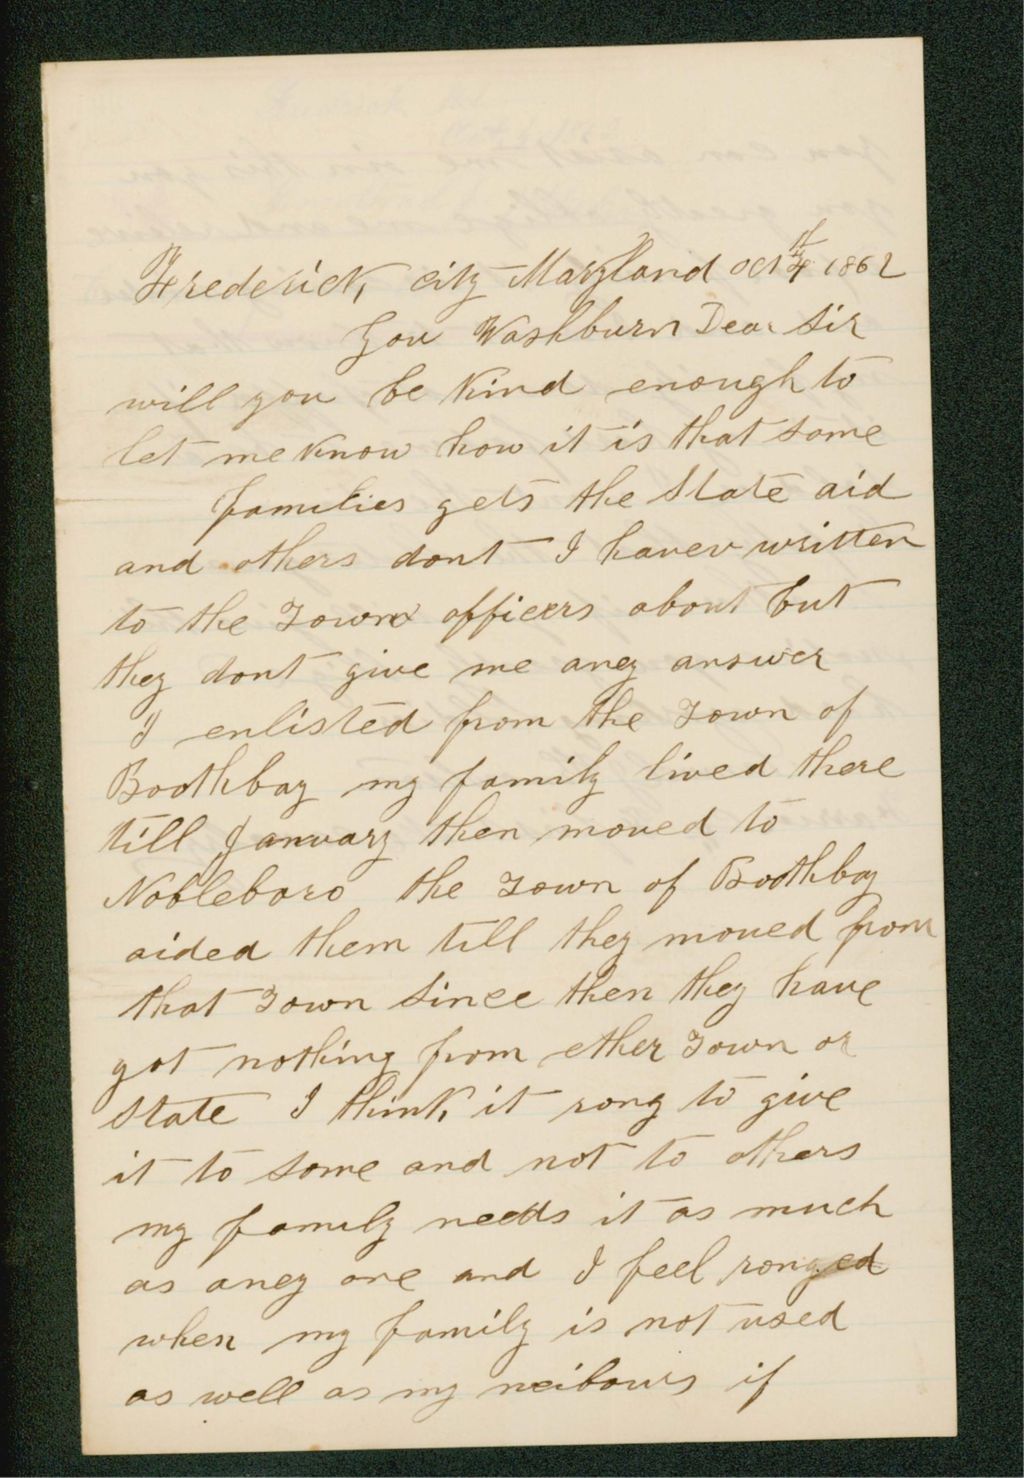 Frederick, city Maryland oct 4 1862
Gov Washburn Dear Sir
will you be Kind enough to
let me Know how it is that some
families gets the State aid
and others dont I haver written
to the Town officers about but
they dont give me aney answer
I enlisted from the Town of
Boothbay my family lived there
till January then moved to
Nobleboro the Town of Boothbay
aided them till they moved from
that Town Since then they have
got nothing from ether Town or
State I think it rong to give
it to some and not to others
my family needs it as much
as aney one and I feel ronged
when my family is not used
as well as my neibours if